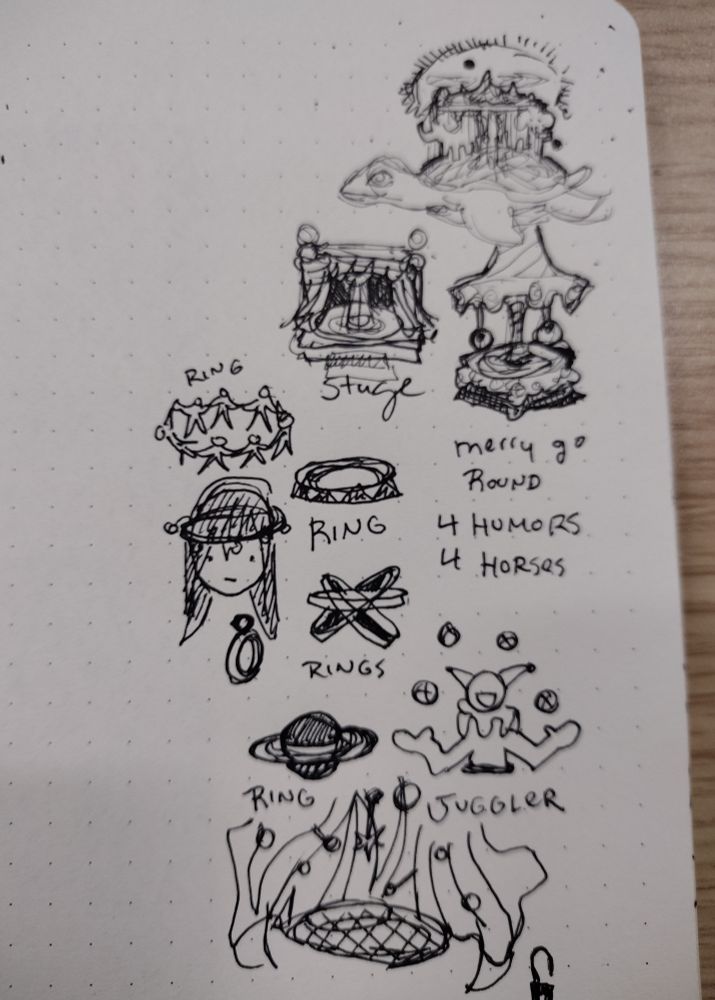 Stage
RING
merry go
ROUND
RING
4 HUMORS
4 HORSES
RINGS
RING
JUGGLER